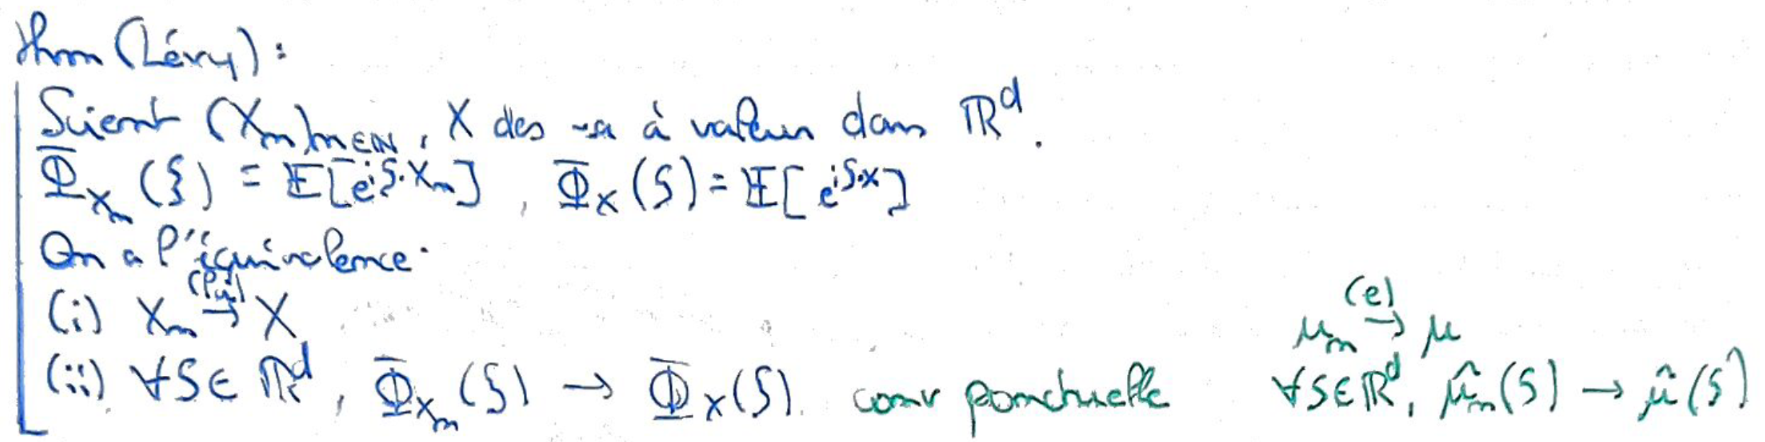 Thm (Lévy) :
Soient (Xₙ)ₙ∈ℕ, X des va à valeur dans ℝᵈ.
Φ_Xₙ(ξ) = 𝔼[e^{iξ·Xₙ}], Φ_X(ξ) = 𝔼[e^{iξ·X}]
On a l'équivalence.
(i) Xₙ →^{(loi)} X
μₙ →^{(e)} μ
(ii) ∀ξ∈ℝᵈ, Φ_Xₙ(ξ) → Φ_X(ξ). conv ponctuelle ∀ξ∈ℝᵈ, μ̂ₙ(ξ) → μ̂(ξ)